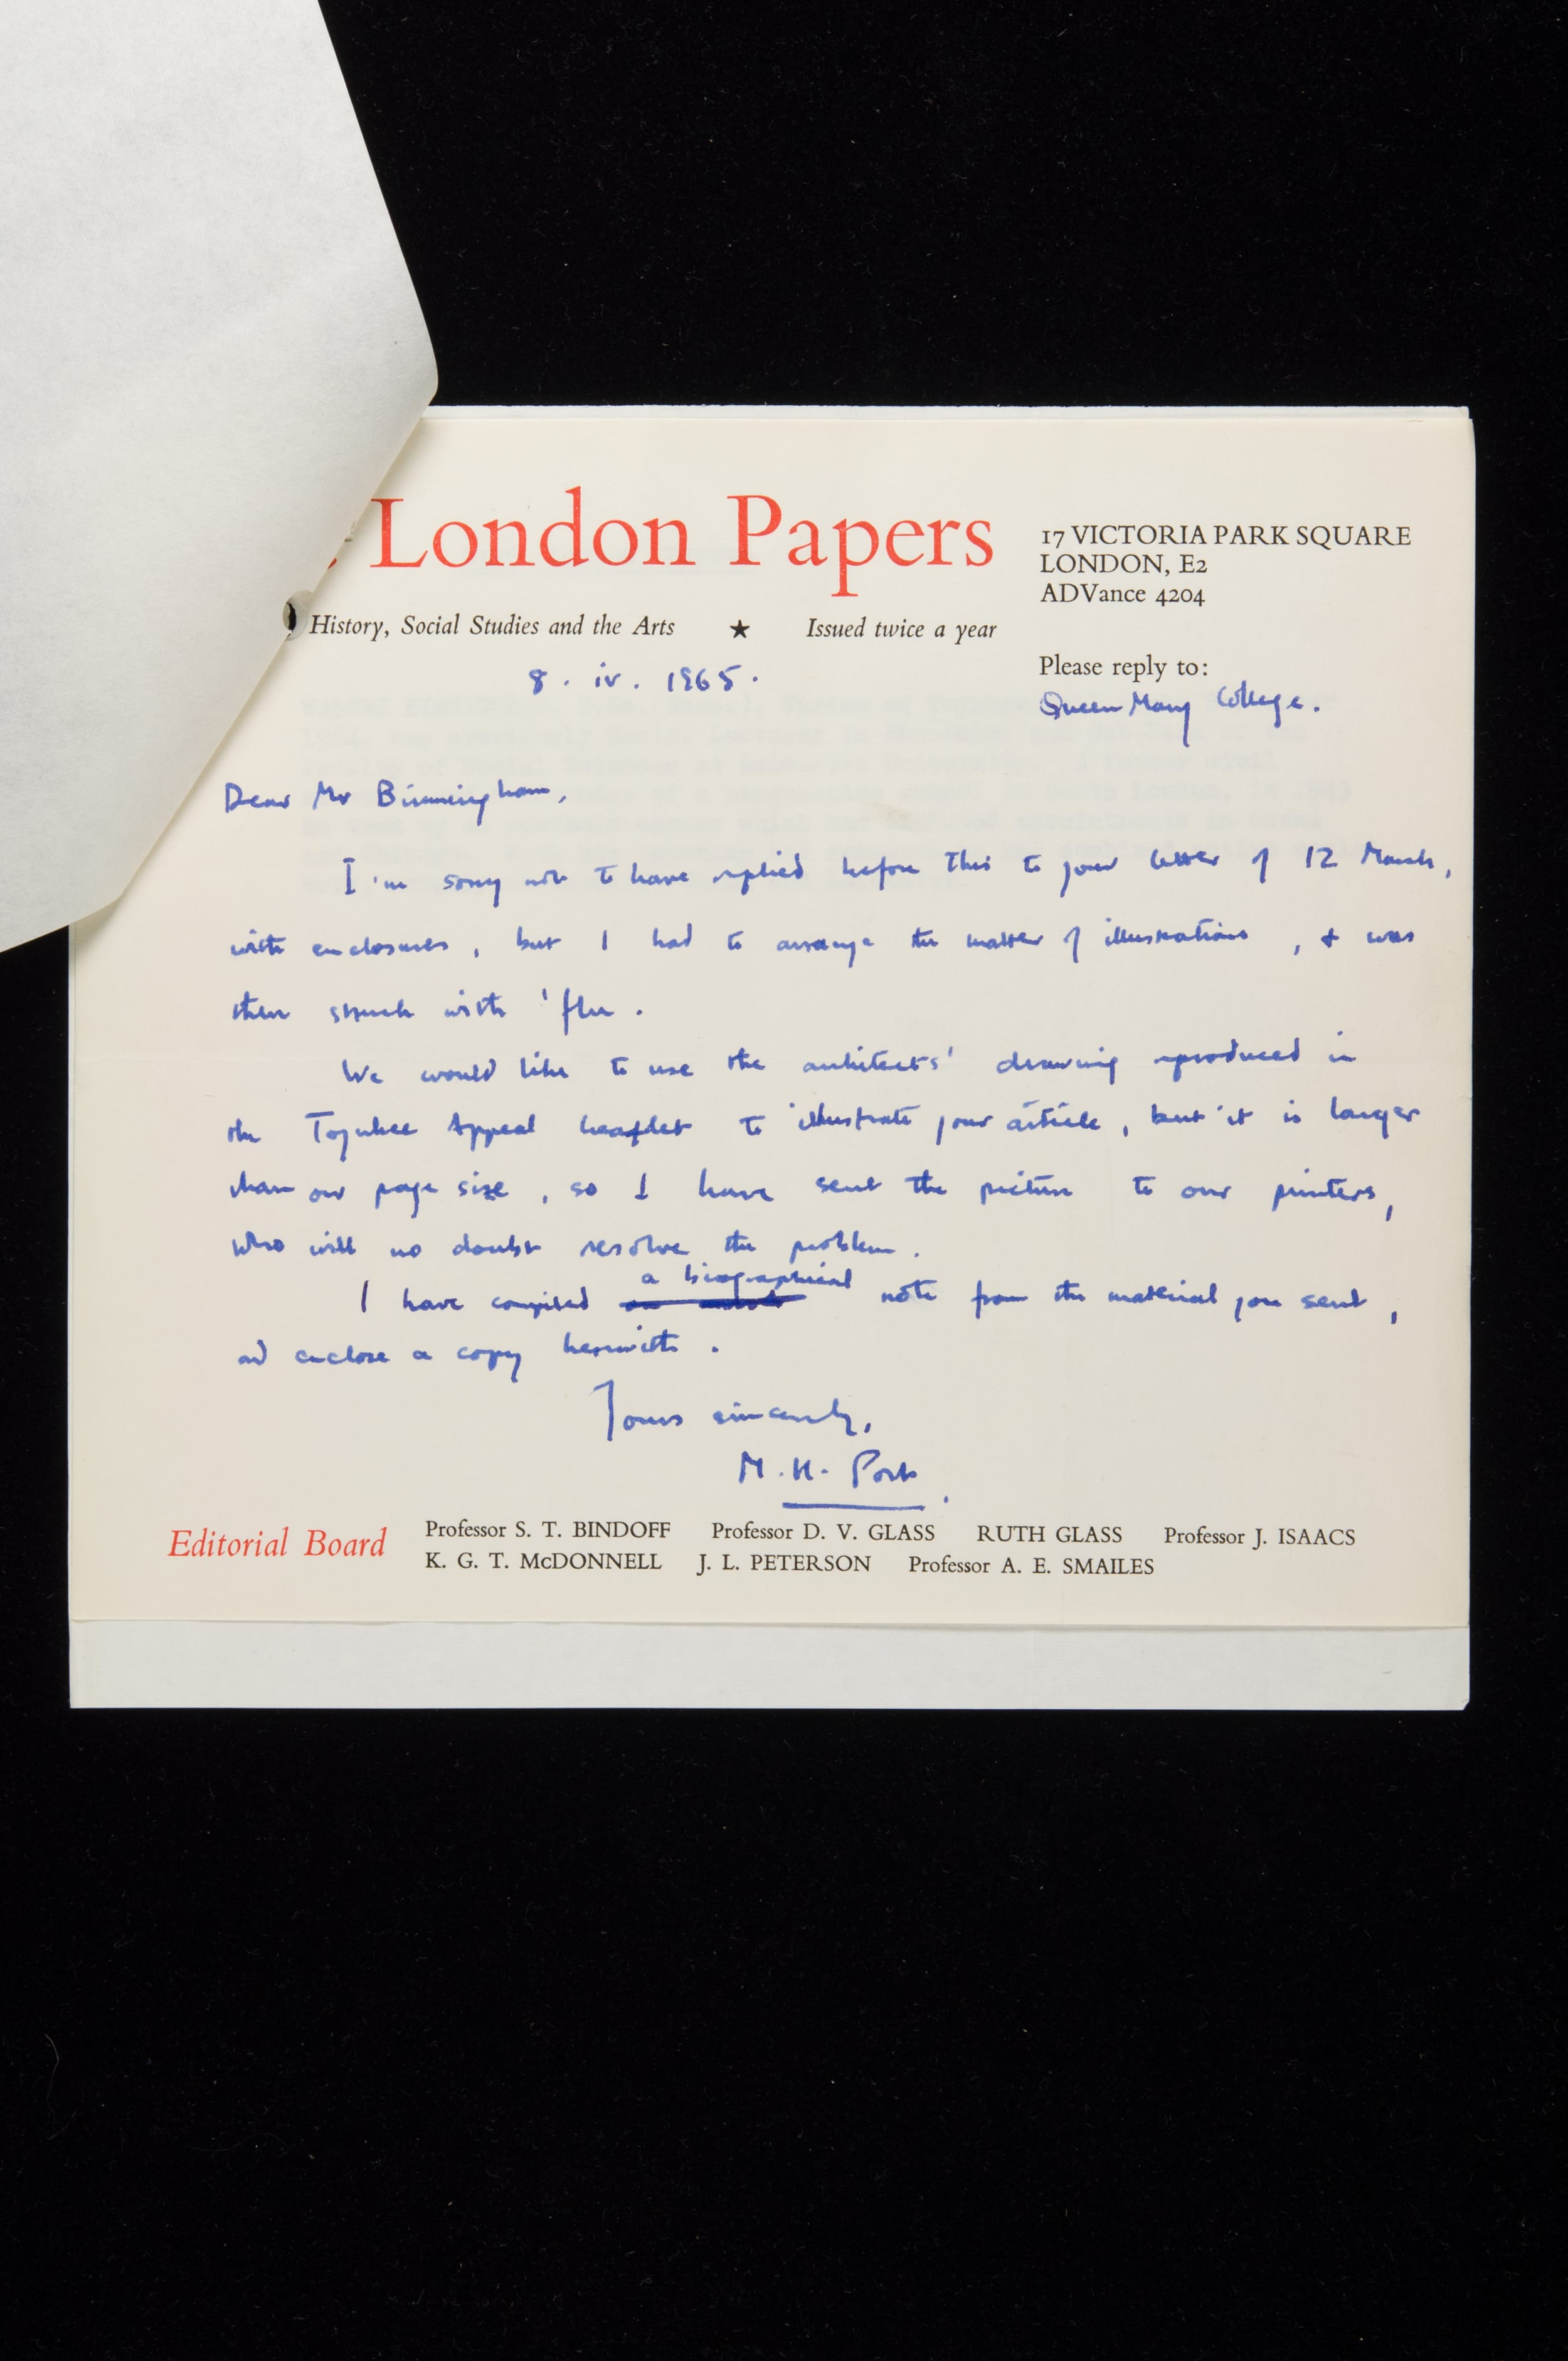 London Papers
History, Social Studies and the Arts ★ Issued twice a year
17 VICTORIA PARK SQUARE
LONDON, E2
ADVance 4204
Please reply to:
Queen Mary College.
8. iv. 1965.
Dear Mr Birmingham,
I'm sorry not to have replied before this to your letter of 12 March,
with enclosures, but I had to arrange the matter of illustrations, & was
then struck with 'flu.
We would like to use the architects' drawing reproduced in
the Toynbee Appeal leaflet to illustrate your article, but it is larger
than our page size, so I have sent the picture to our printers,
who will no doubt resolve the problem.
I have compiled a biographical note from the material you sent,
and enclose a copy herewith.
Yours sincerely,
M.H. Port.
Editorial Board
Professor S. T. BINDOFF Professor D. V. GLASS RUTH GLASS Professor J. ISAACS
K. G. T. McDONNELL J. L. PETERSON Professor A. E. SMAILES